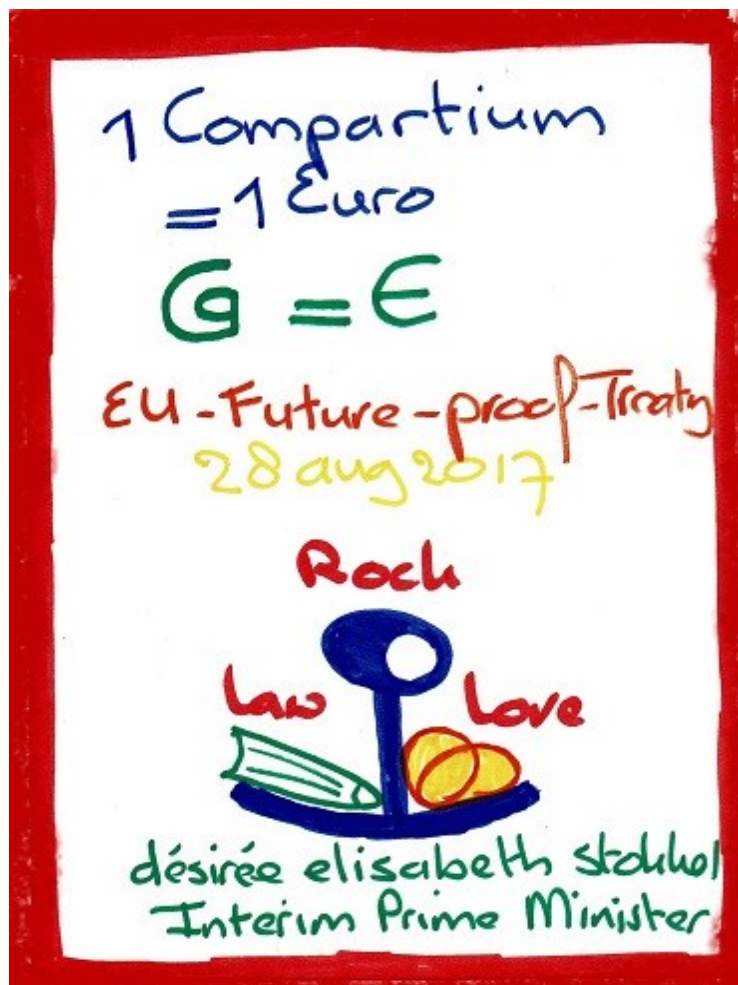 1 Compartium
= 1 Euro
G = €
EU-Future-proof-Treaty
28 aug 2017
Rock
Law Love
désirée elisabeth stokkel
Interim Prime Minister